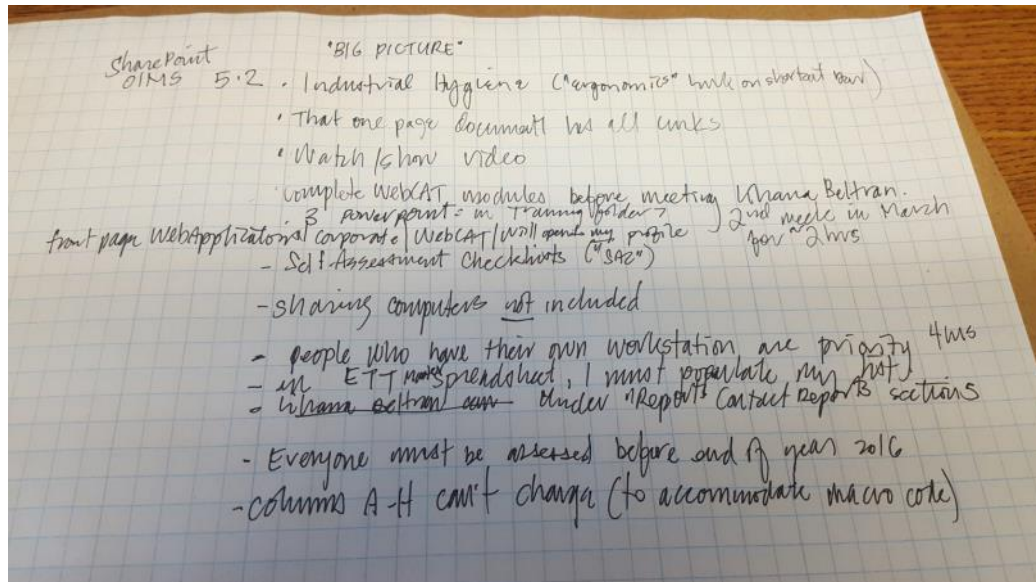 "BIG PICTURE"
SharePoint
OIMS 5.2 · Industrial Hygiene ("ergonomics" link on shortcut bar)
· That one page document has all links
· Watch/show video
· complete WebCAT modules before meeting Khana Beltran.
· 3 powerpoints in Training folder 2nd week in March
front page WebApplications/corporate/WebCAT/Will open my profile for ~2hrs
- Self-Assessment Checklists ("SAZ")
- sharing computers not included
- people who have their own workstation are priority 4hrs
- in ETT spreadsheet, I must populate my list
- Khana Beltran can Under "Reports Contact Reports sections
- Everyone must be assessed before end of year 2016
- columns A-H can't change (to accommodate macro code)